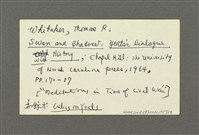 Whitaker, Thomas R.
Swan and Shadow: Yeats's Dialogue
with History, Chapel Hill: The University
of North Carolina press, 1964.
PP.
["Meditations in Time of Civil War"]